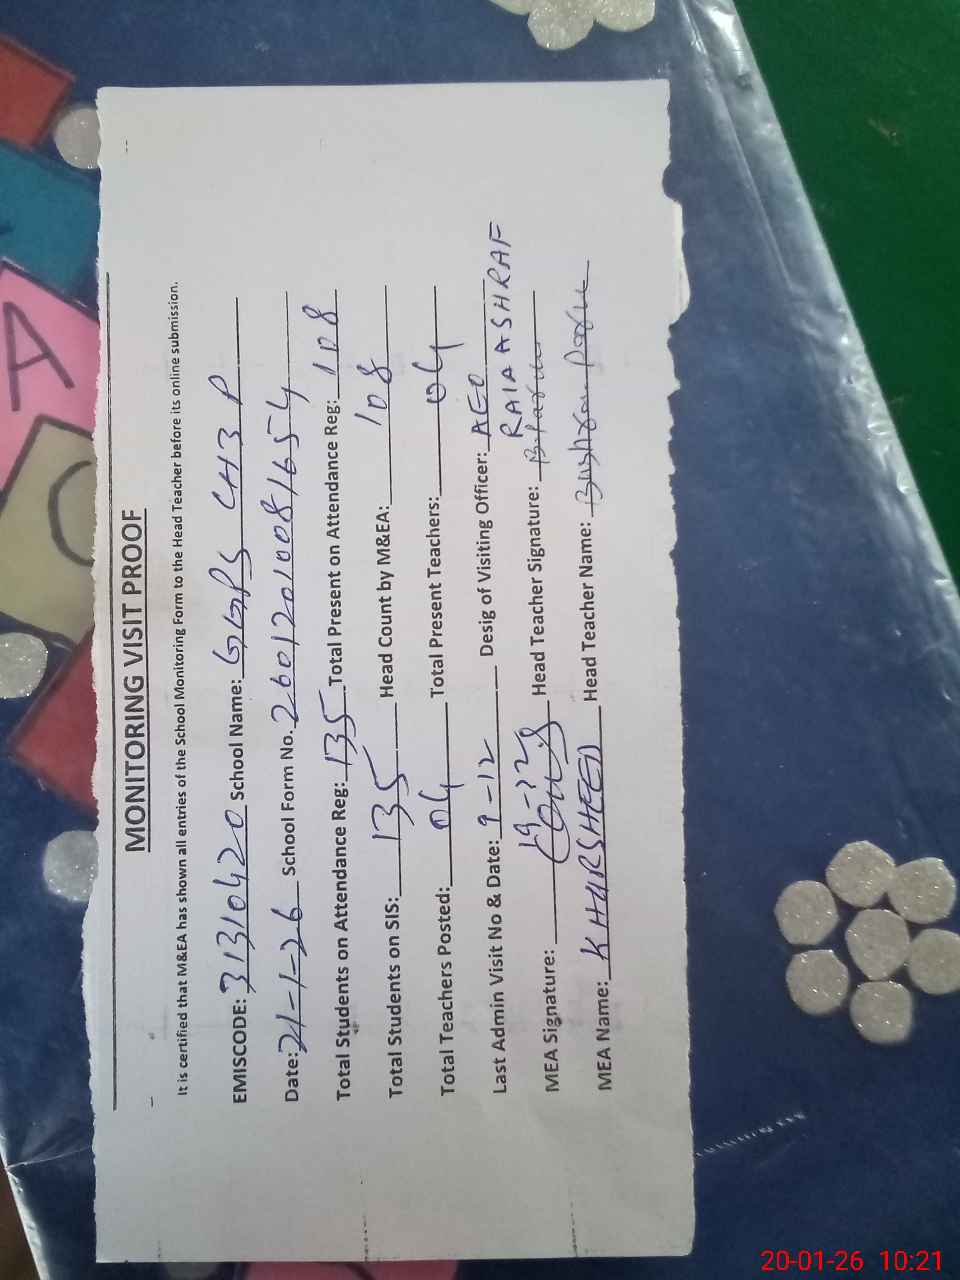 MONITORING VISIT PROOF
It is certified that M&EA has shown all entries of the School Monitoring Form to the Head Teacher before its online submission.
EMISCODE: 31310420 School Name: GGPS CH3 P
Date: 21-1-26 School Form No. 26012010081654
Total Students on Attendance Reg: 135 Total Present on Attendance Reg: 108
Total Students on SIS: 135 Head Count by M&EA: 108
Total Teachers Posted: 04 Total Present Teachers: 04
Last Admin Visit No & Date: 9-12 Desig of Visiting Officer: AEO
19-12 RAIA ASHRAF
MEA Signature: Head Teacher Signature:
MEA Name: KHURSHEED Head Teacher Name: Bushra
A
C
20-01-26 10:21